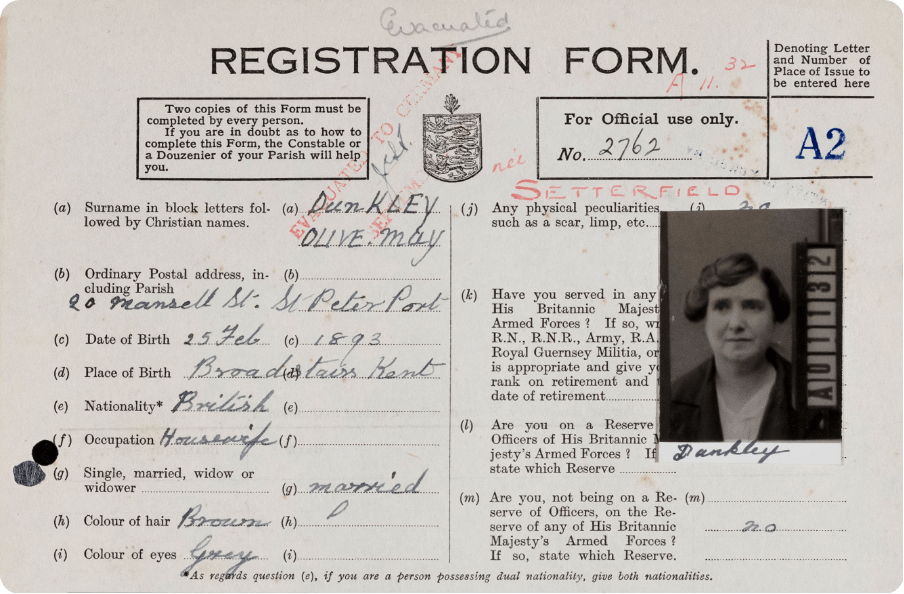 Evacuated
REGISTRATION FORM.
A 11. 32
Denoting Letter
and Number of
Place of Issue to
be entered here
Two copies of this Form must be
completed by every person.
If you are in doubt as to how to
complete this Form, the Constable or
a Douzenier of your Parish will help
you.
EVACUATED TO GERMANY
Sept.
For Official use only.
No. 2762
A2
nee
SETTERFIELD
(a) Surname in block letters fol-
lowed by Christian names.
(a) DUNKLEY
OLIVE. MAY
(b) Ordinary Postal address, in-
cluding Parish
(b)
20 Mansell St. St Peter Port
(c) Date of Birth 25 Feb (c) 1893
(d) Place of Birth Broadstairs Kent
(d)
(e) Nationality* British (e)
(f) Occupation Housewife (f)
(g) Single, married, widow or
widower
(g) married
(h) Colour of hair Brown (h)
(i) Colour of eyes Grey (i)
(j) Any physical peculiarities,
such as a scar, limp, etc.
(j) no
(k) Have you served in any
His Britannic Majest
Armed Forces ? If so, wr
R.N., R.N.R., Army, R.A.
Royal Guernsey Militia, or
is appropriate and give yo
rank on retirement and
date of retirement
A01132
Dunkley
(l) Are you on a Reserve
Officers of His Britannic M
jesty's Armed Forces ? If
state which Reserve
(m) Are you, not being on a Re-
serve of Officers, on the Re-
serve of any of His Britannic
Majesty's Armed Forces ?
If so, state which Reserve.
(m)
no
*As regards question (e), if you are a person possessing dual nationality, give both nationalities.